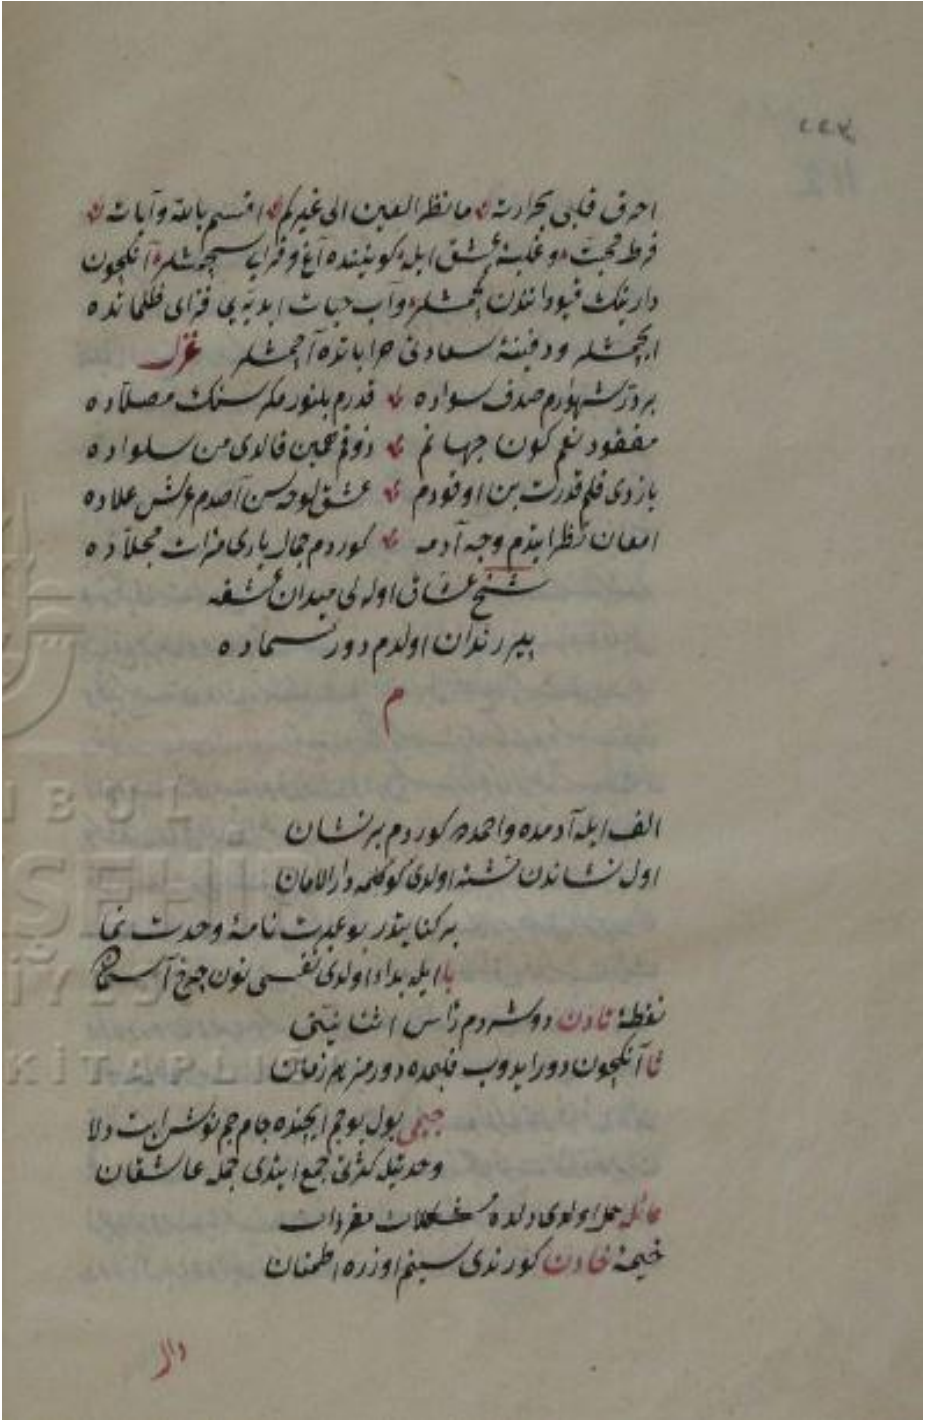 احرق قلبى بحرارته ما نظر العين الى غيركم اقسم بالله وآياته
فرط محبت و غلبۀ عشق ايله كوينده آغ و قرايى سچمشلر آنكچون
دارينك قيودانندن كچمشلر و آب حيات ابديه يى قراى ظلماتده
ايچمشلر و دفينۀ سعادتى خراباتده آچمشلر غزل
بر در شهوارم صدف سواده قدرم بلنور مكر سنك مصلاده
مفقود كون جهانم ذوقم همين قالدى من سلواده
يازدى قلم قدرت بن اوقودم عشق لوحه سن آصدم عرش علاده
امعان نظر ايتدم وجه آدمه كوردم جمال يارى مرآت مجلاده
شيخ عشاق اوله لى ميدان عشقه
پير رندان اولدم دور سماده
م
الف ايله آدمده واحمده كوردم بر نشان
اول نشاندن نشئه اولدى كوكلمه دار الامان
بر كتابتدر بو عبرت نامۀ وحدت نما
با ايله بداء اولدى نفسى نون چرخ آسمان
نقطۀ تادن دوشردم رأس اثنا نيتى
ثا آنكچون دور ايدوب قلبمده دور هر زمان
جيمى بول بو جم ايچنده جام جم نوش ايت دلا
وحدتيله كثرتى جمع ايتدى جمله عاشقان
حائله حل اولدى دلده مشكلات مفردات
خيمۀ خادن كورندى سينم اوزره اطمنان
دال